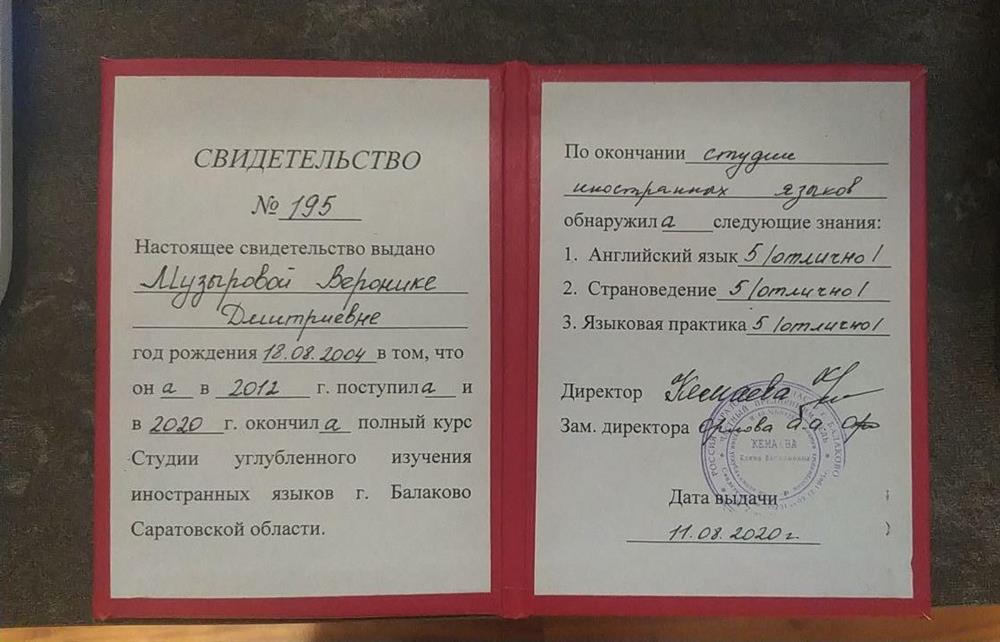 СВИДЕТЕЛЬСТВО
№ 195
Настоящее свидетельство выдано
Музыровой Веронике
Дмитриевне
год рождения 18.08.2004 в том, что
он а в 2012 г. поступил а и
в 2020 г. окончил а полный курс
Студии углубленного изучения
иностранных языков г. Балаково
Саратовской области.
По окончании студии
иностранных языков
обнаружил а следующие знания:
1. Английский язык 5 /отлично/
2. Страноведение 5 /отлично/
3. Языковая практика 5 /отлично/
Директор Кемаева
Зам. директора Орлова
КЕМАЕВА
Дата выдачи
11.08.2020 г.